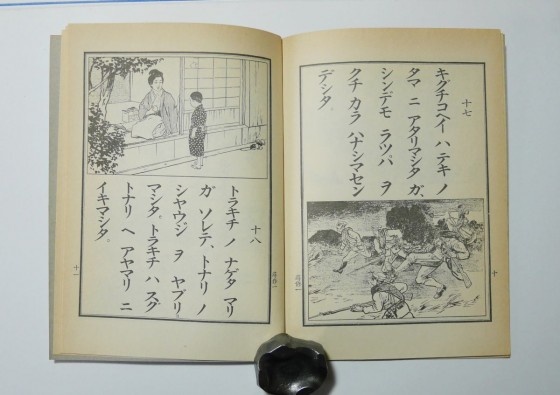 十七
キグチコヘイ ハ テキ ノ
タマ ニ アタリマシタ ガ、
シンデモ ラツパ ヲ
クチ カラ ハナシマセン
デシタ。
十
十八
トラキチ ノ ナゲタ マリ
ガ ソレテ、トナリ ノ
シヤウジ ヲ ヤブリ
マシタ。トラキチ ハ スグ
トナリ ヘ アヤマリ ニ
イキマシタ。
十一